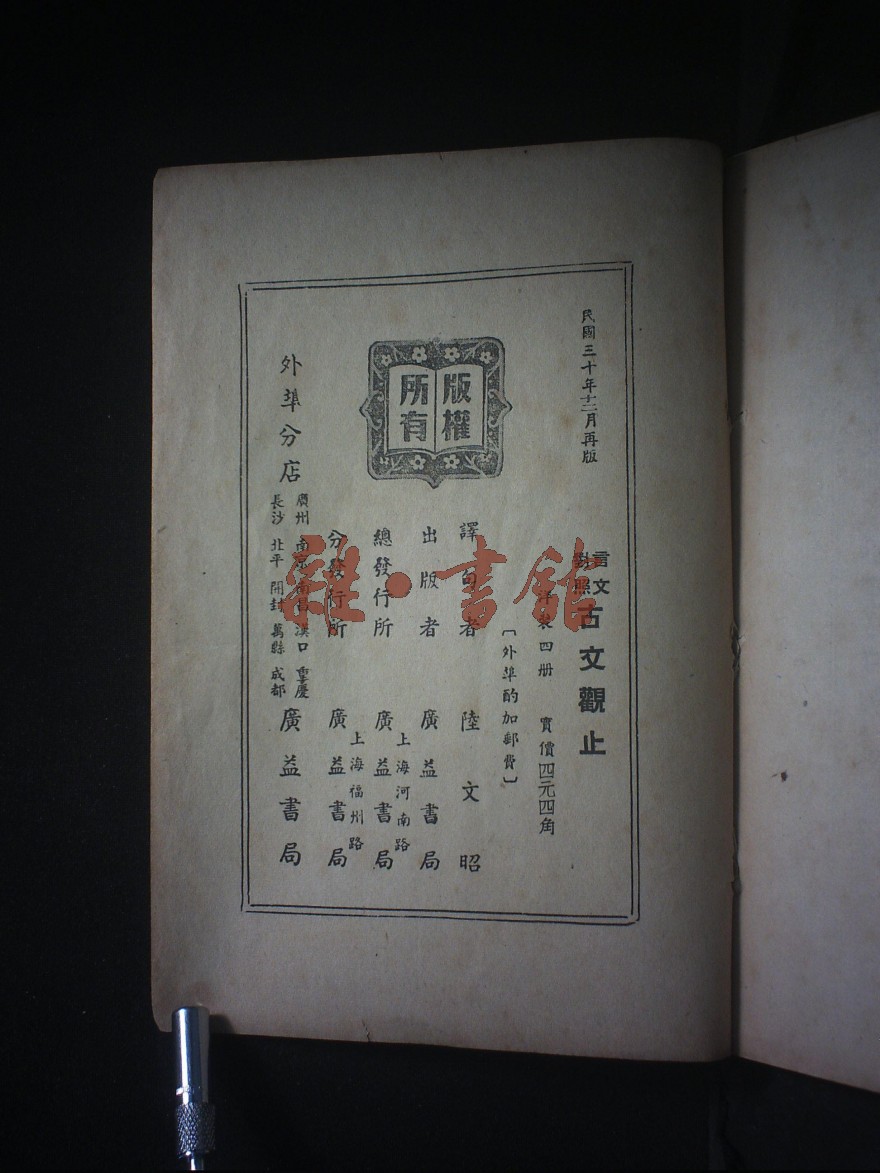 民國三十年十二月再版
言文對照 古文觀止
洋裝四册 實價四元四角
〔外埠酌加郵費〕
譯 者 陸文昭
出版者 廣益書局
總發行所 上海河南路 廣益書局
分發行所 上海福州路 廣益書局
外埠分店 廣州 南京 南昌 漢口 重慶 長沙 北平 開封 萬縣 成都 廣益書局
版權所有
雜·書館